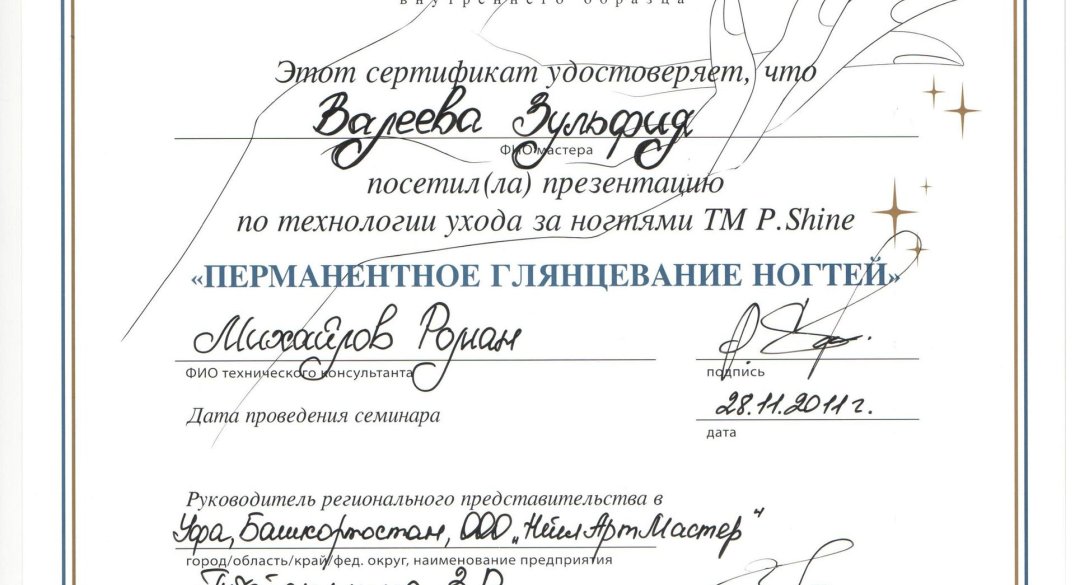 внутреннего образца
Этот сертификат удостоверяет, что
Валеева Зульфид
ФИО мастера
посетил(ла) презентацию
по технологии ухода за ногтями ТМ P.Shine
«ПЕРМАНЕНТНОЕ ГЛЯНЦЕВАНИЕ НОГТЕЙ»
Михайлов Роман
ФИО технического консультанта
подпись
Дата проведения семинара
28.11.2011 г.
дата
Руководитель регионального представительства в
Уфа, Башкортостан, ООО „НейлАртМастер"
город/область/край/фед. округ, наименование предприятия